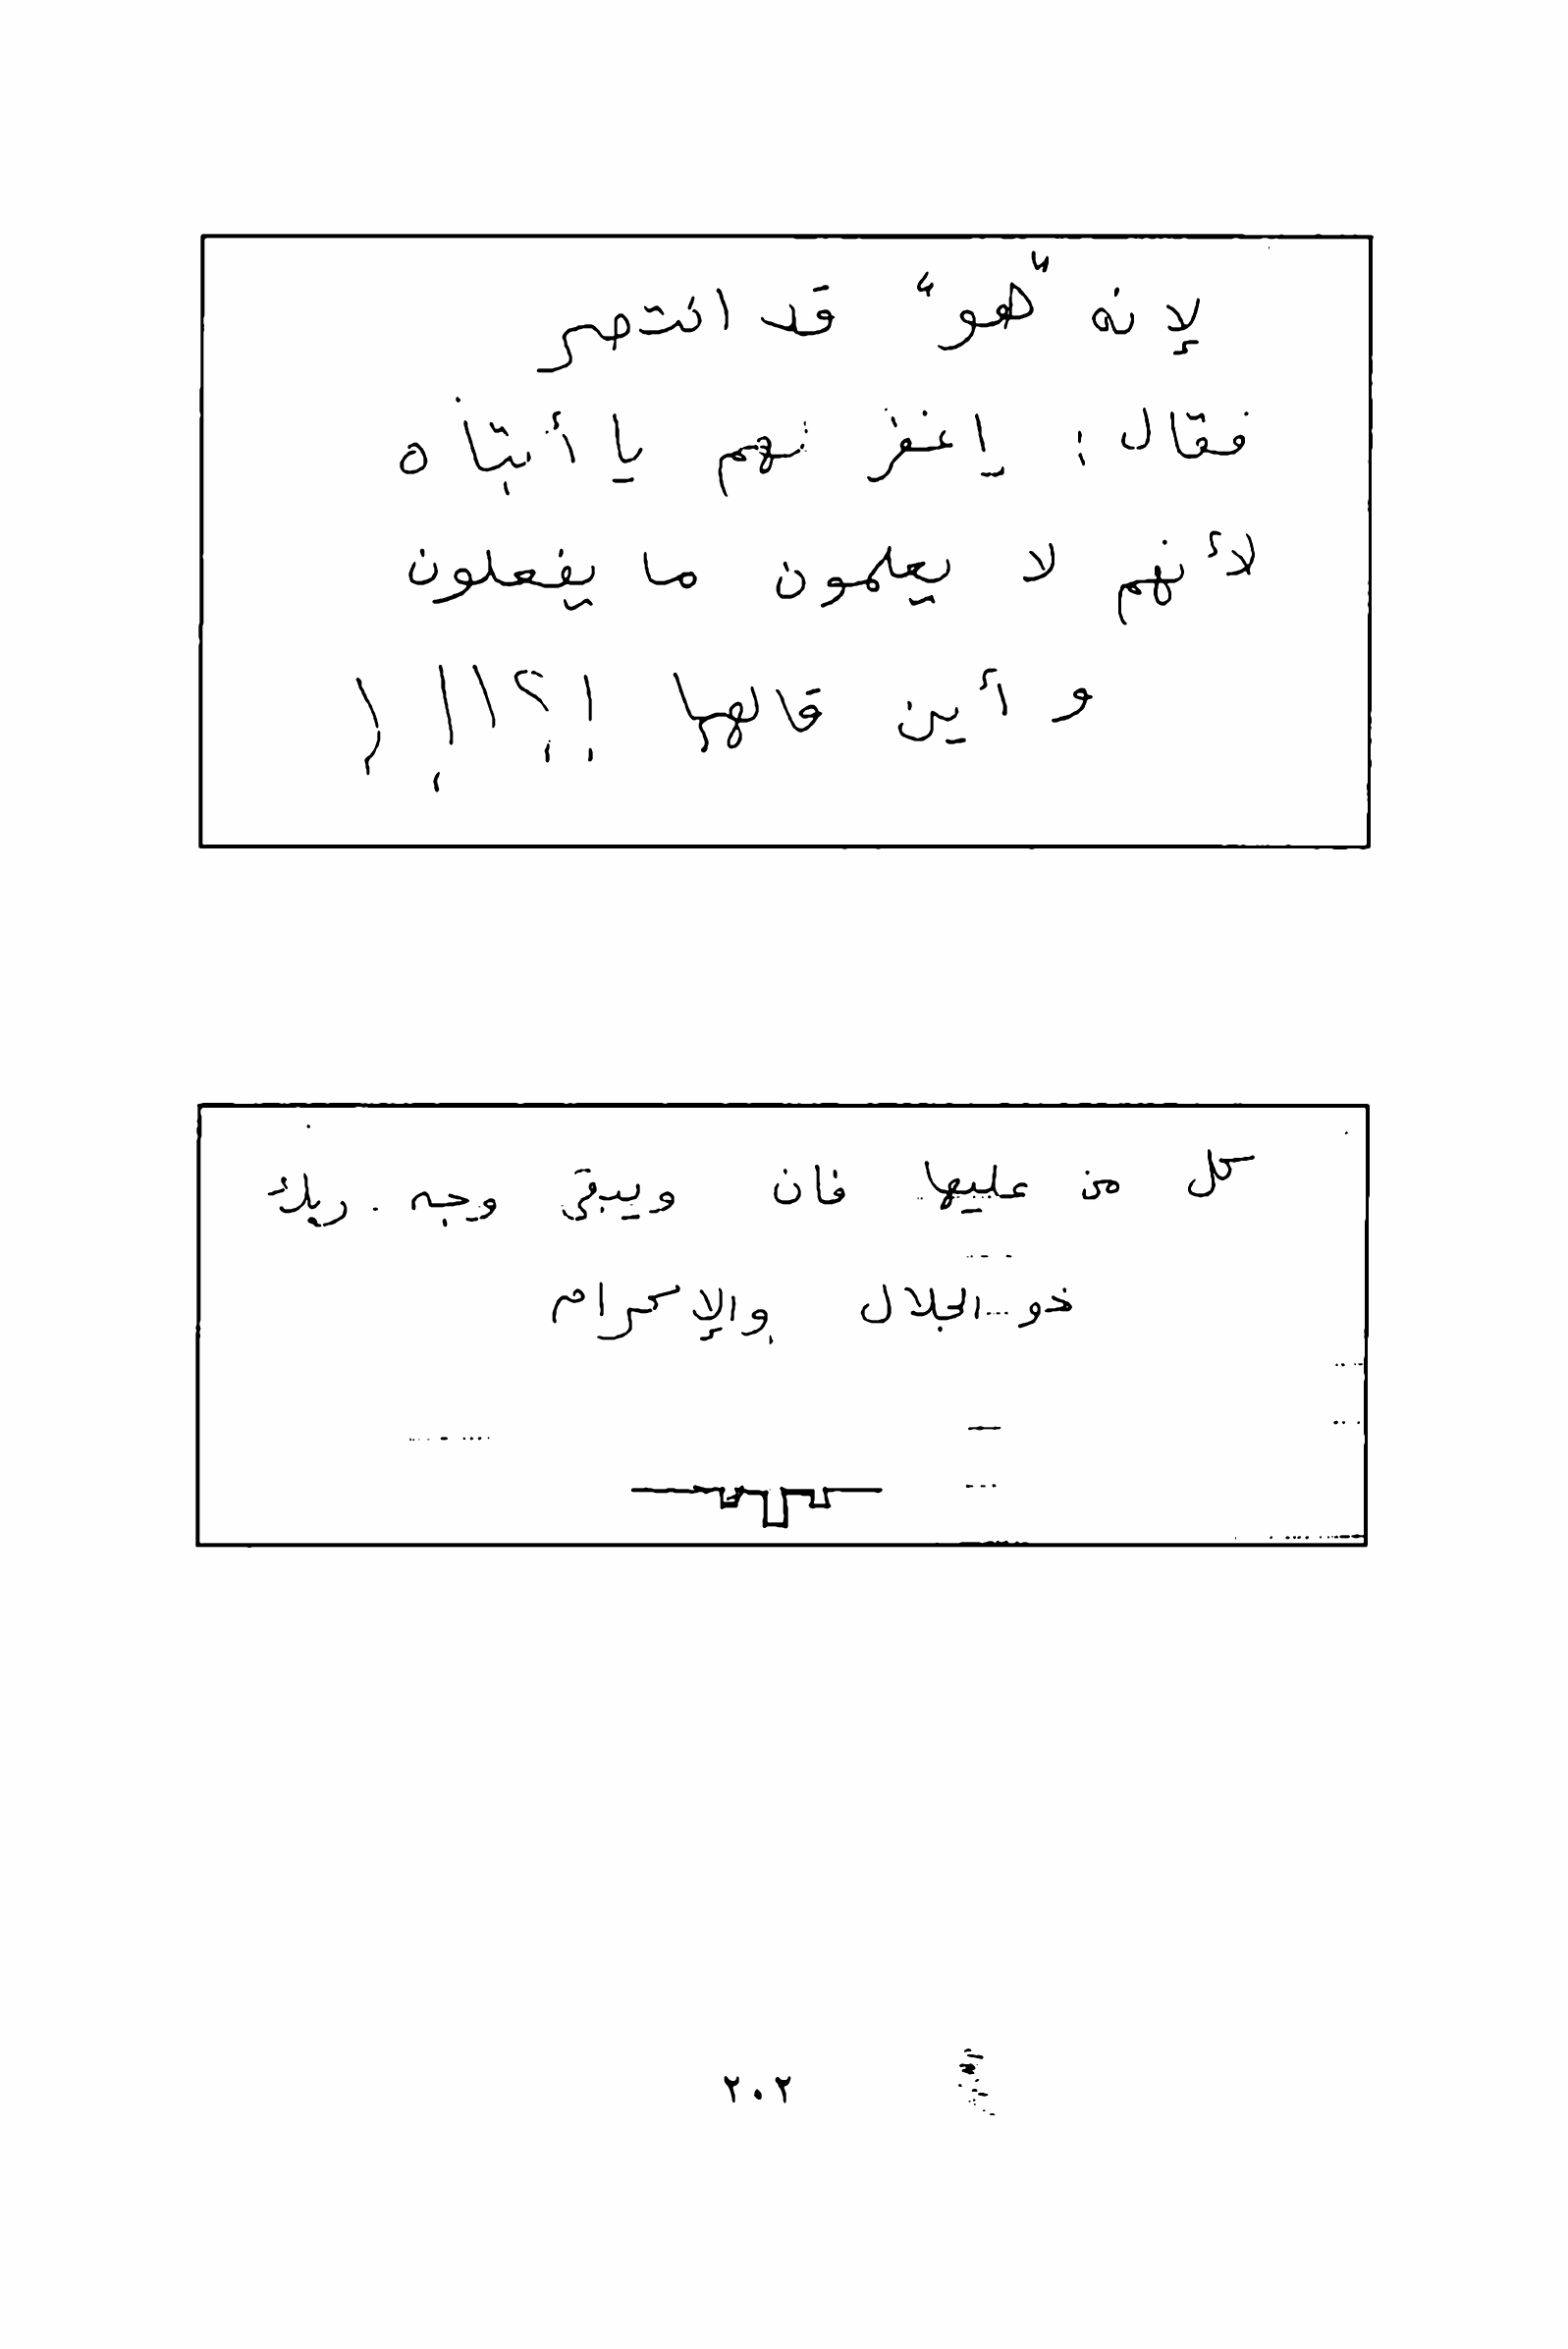 لإنه "هو" قد انتصر
فقال: إغفر لهم يا أبتاه
لأنهم لا يعلمون ما يفعلون
و أين قالها !؟!!!
كل من عليها فان ويبقى وجه ربك
ذو الجلال والإكرام
٢٠٢